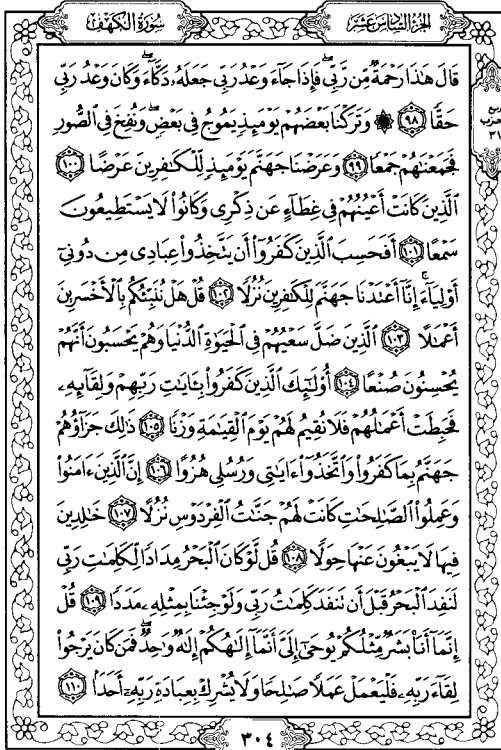 سُورَةُ الكَهْفِ
الجُزْءُ السَّادِسُ عَشَرَ
قَالَ هَٰذَا رَحْمَةٌ مِّن رَّبِّي ۖ فَإِذَا جَآءَ وَعْدُ رَبِّي جَعَلَهُۥ دَكَّآءَ ۖ وَكَانَ وَعْدُ رَبِّي
حَقًّا ٩٨ ۞ وَتَرَكْنَا بَعْضَهُمْ يَوْمَئِذٍ يَمُوجُ فِي بَعْضٍ ۖ وَنُفِخَ فِي ٱلصُّورِ
فَجَمَعْنَٰهُمْ جَمْعًا ٩٩ وَعَرَضْنَا جَهَنَّمَ يَوْمَئِذٍ لِّلْكَٰفِرِينَ عَرْضًا ١٠٠
ٱلَّذِينَ كَانَتْ أَعْيُنُهُمْ فِي غِطَآءٍ عَن ذِكْرِي وَكَانُوا۟ لَا يَسْتَطِيعُونَ
سَمْعًا ١٠١ أَفَحَسِبَ ٱلَّذِينَ كَفَرُوٓا۟ أَن يَتَّخِذُوا۟ عِبَادِي مِن دُونِيٓ
أَوْلِيَآءَ ۚ إِنَّآ أَعْتَدْنَا جَهَنَّمَ لِلْكَٰفِرِينَ نُزُلًا ١٠٢ قُلْ هَلْ نُنَبِّئُكُم بِٱلْأَخْسَرِينَ
أَعْمَٰلًا ١٠٣ ٱلَّذِينَ ضَلَّ سَعْيُهُمْ فِي ٱلْحَيَوٰةِ ٱلدُّنْيَا وَهُمْ يَحْسَبُونَ أَنَّهُمْ
يُحْسِنُونَ صُنْعًا ١٠٤ أُو۟لَٰٓئِكَ ٱلَّذِينَ كَفَرُوا۟ بِـَٔايَٰتِ رَبِّهِمْ وَلِقَآئِهِۦ
فَحَبِطَتْ أَعْمَٰلُهُمْ فَلَا نُقِيمُ لَهُمْ يَوْمَ ٱلْقِيَٰمَةِ وَزْنًا ١٠٥ ذَٰلِكَ جَزَآؤُهُمْ
جَهَنَّمُ بِمَا كَفَرُوا۟ وَٱتَّخَذُوٓا۟ ءَايَٰتِي وَرُسُلِي هُزُوًا ١٠٦ إِنَّ ٱلَّذِينَ ءَامَنُوا۟
وَعَمِلُوا۟ ٱلصَّٰلِحَٰتِ كَانَتْ لَهُمْ جَنَّٰتُ ٱلْفِرْدَوْسِ نُزُلًا ١٠٧ خَٰلِدِينَ
فِيهَا لَا يَبْغُونَ عَنْهَا حِوَلًا ١٠٨ قُل لَّوْ كَانَ ٱلْبَحْرُ مِدَادًا لِّكَلِمَٰتِ رَبِّي
لَنَفِدَ ٱلْبَحْرُ قَبْلَ أَن تَنفَدَ كَلِمَٰتُ رَبِّي وَلَوْ جِئْنَا بِمِثْلِهِۦ مَدَدًا ١٠٩ قُلْ
إِنَّمَآ أَنَا۠ بَشَرٌ مِّثْلُكُمْ يُوحَىٰٓ إِلَيَّ أَنَّمَآ إِلَٰهُكُمْ إِلَٰهٌ وَٰحِدٌ ۖ فَمَن كَانَ يَرْجُوا۟
لِقَآءَ رَبِّهِۦ فَلْيَعْمَلْ عَمَلًا صَٰلِحًا وَلَا يُشْرِكْ بِعِبَادَةِ رَبِّهِۦٓ أَحَدًۢا ١١٠
ربع
حزب
٣١
٣٠٤